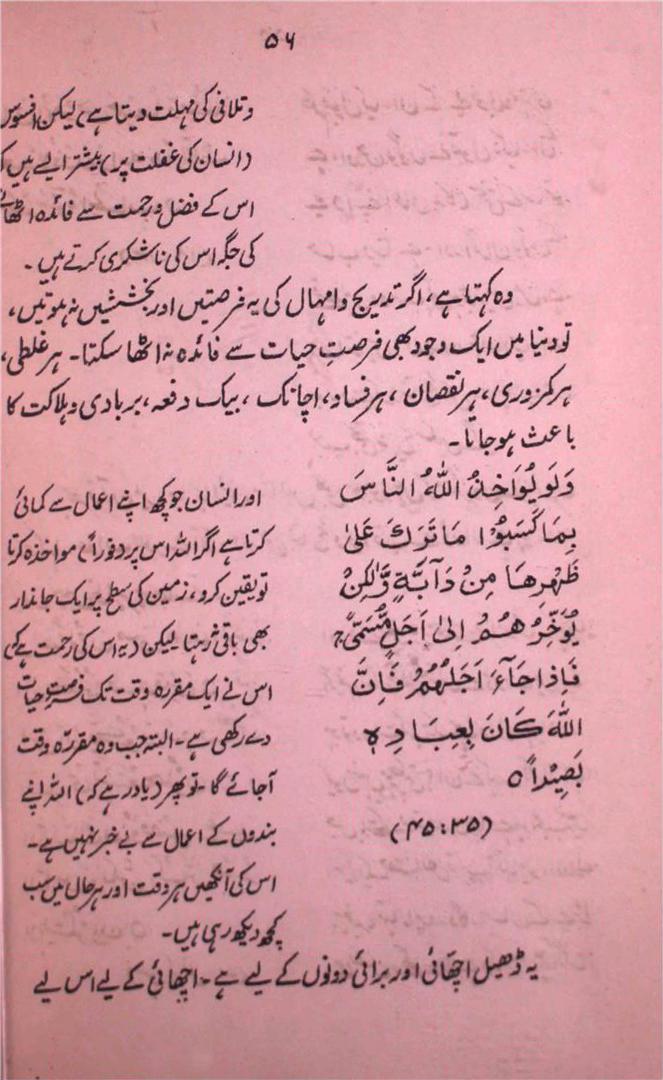 ۵۶
و تلافی کی مہلت دیتا ہے) لیکن افسوس
(انسان کی غفلت پر) بیشتر ایسے ہیں کہ
اس کے فضل و رحمت سے فائدہ اٹھانے
کی جگہ اس کی ناشکری کرتے ہیں۔
وہ کہتا ہے، اگر تدریج و امہال کی یہ فرصتیں اور بخششیں نہ ہوتیں،
تو دنیا میں ایک وجود بھی فرصتِ حیات سے فائدہ نہ اٹھا سکتا۔ ہر غلطی،
ہر کمزوری، ہر نقصان، ہر فساد، اچانک، بیک دفعہ، بربادی و ہلاکت کا
باعث ہو جاتا۔
وَلَو یُوَاخِذُ اللّٰهُ النَّاسَ
بِمَا کَسَبُوْا مَا تَرَكَ عَلیٰ
ظَهْرِهَا مِنْ دَآبَّةٍ وَّلٰکِنْ
یُؤَخِّرُهُمْ اِلیٰ اَجَلٍ مُّسَمًّی ج
فَاِذَا جَآءَ اَجَلُهُمْ فَاِنَّ
اللّٰهَ کَانَ بِعِبَادِہٖ
بَصِیْراً ٥
(۴۵:۳۵)
اور انسان جو کچھ اپنے اعمال سے کمائی
کرتا ہے اگر اللہ اس پر (فوراً) مواخذہ کرتا
تو یقین کرو، زمین کی سطح پر ایک جاندار
بھی باقی نہ رہتا لیکن (یہ اس کی رحمت ہے کہ)
اس نے ایک مقررہ وقت تک فرصتِ حیات
دے رکھی ہے۔ البتہ جب وہ مقررّہ وقت
آجائے گا۔ تو پھر (یاد رہے کہ) اللہ اپنے
بندوں کے اعمال سے بے خبر نہیں ہے۔
اس کی آنکھیں ہر وقت اور ہر حال میں سب
کچھ دیکھ رہی ہیں۔
یہ ڈھیل اچھائی اور برائی دونوں کے لیے ہے۔ اچھائی کے لیے اس لیے